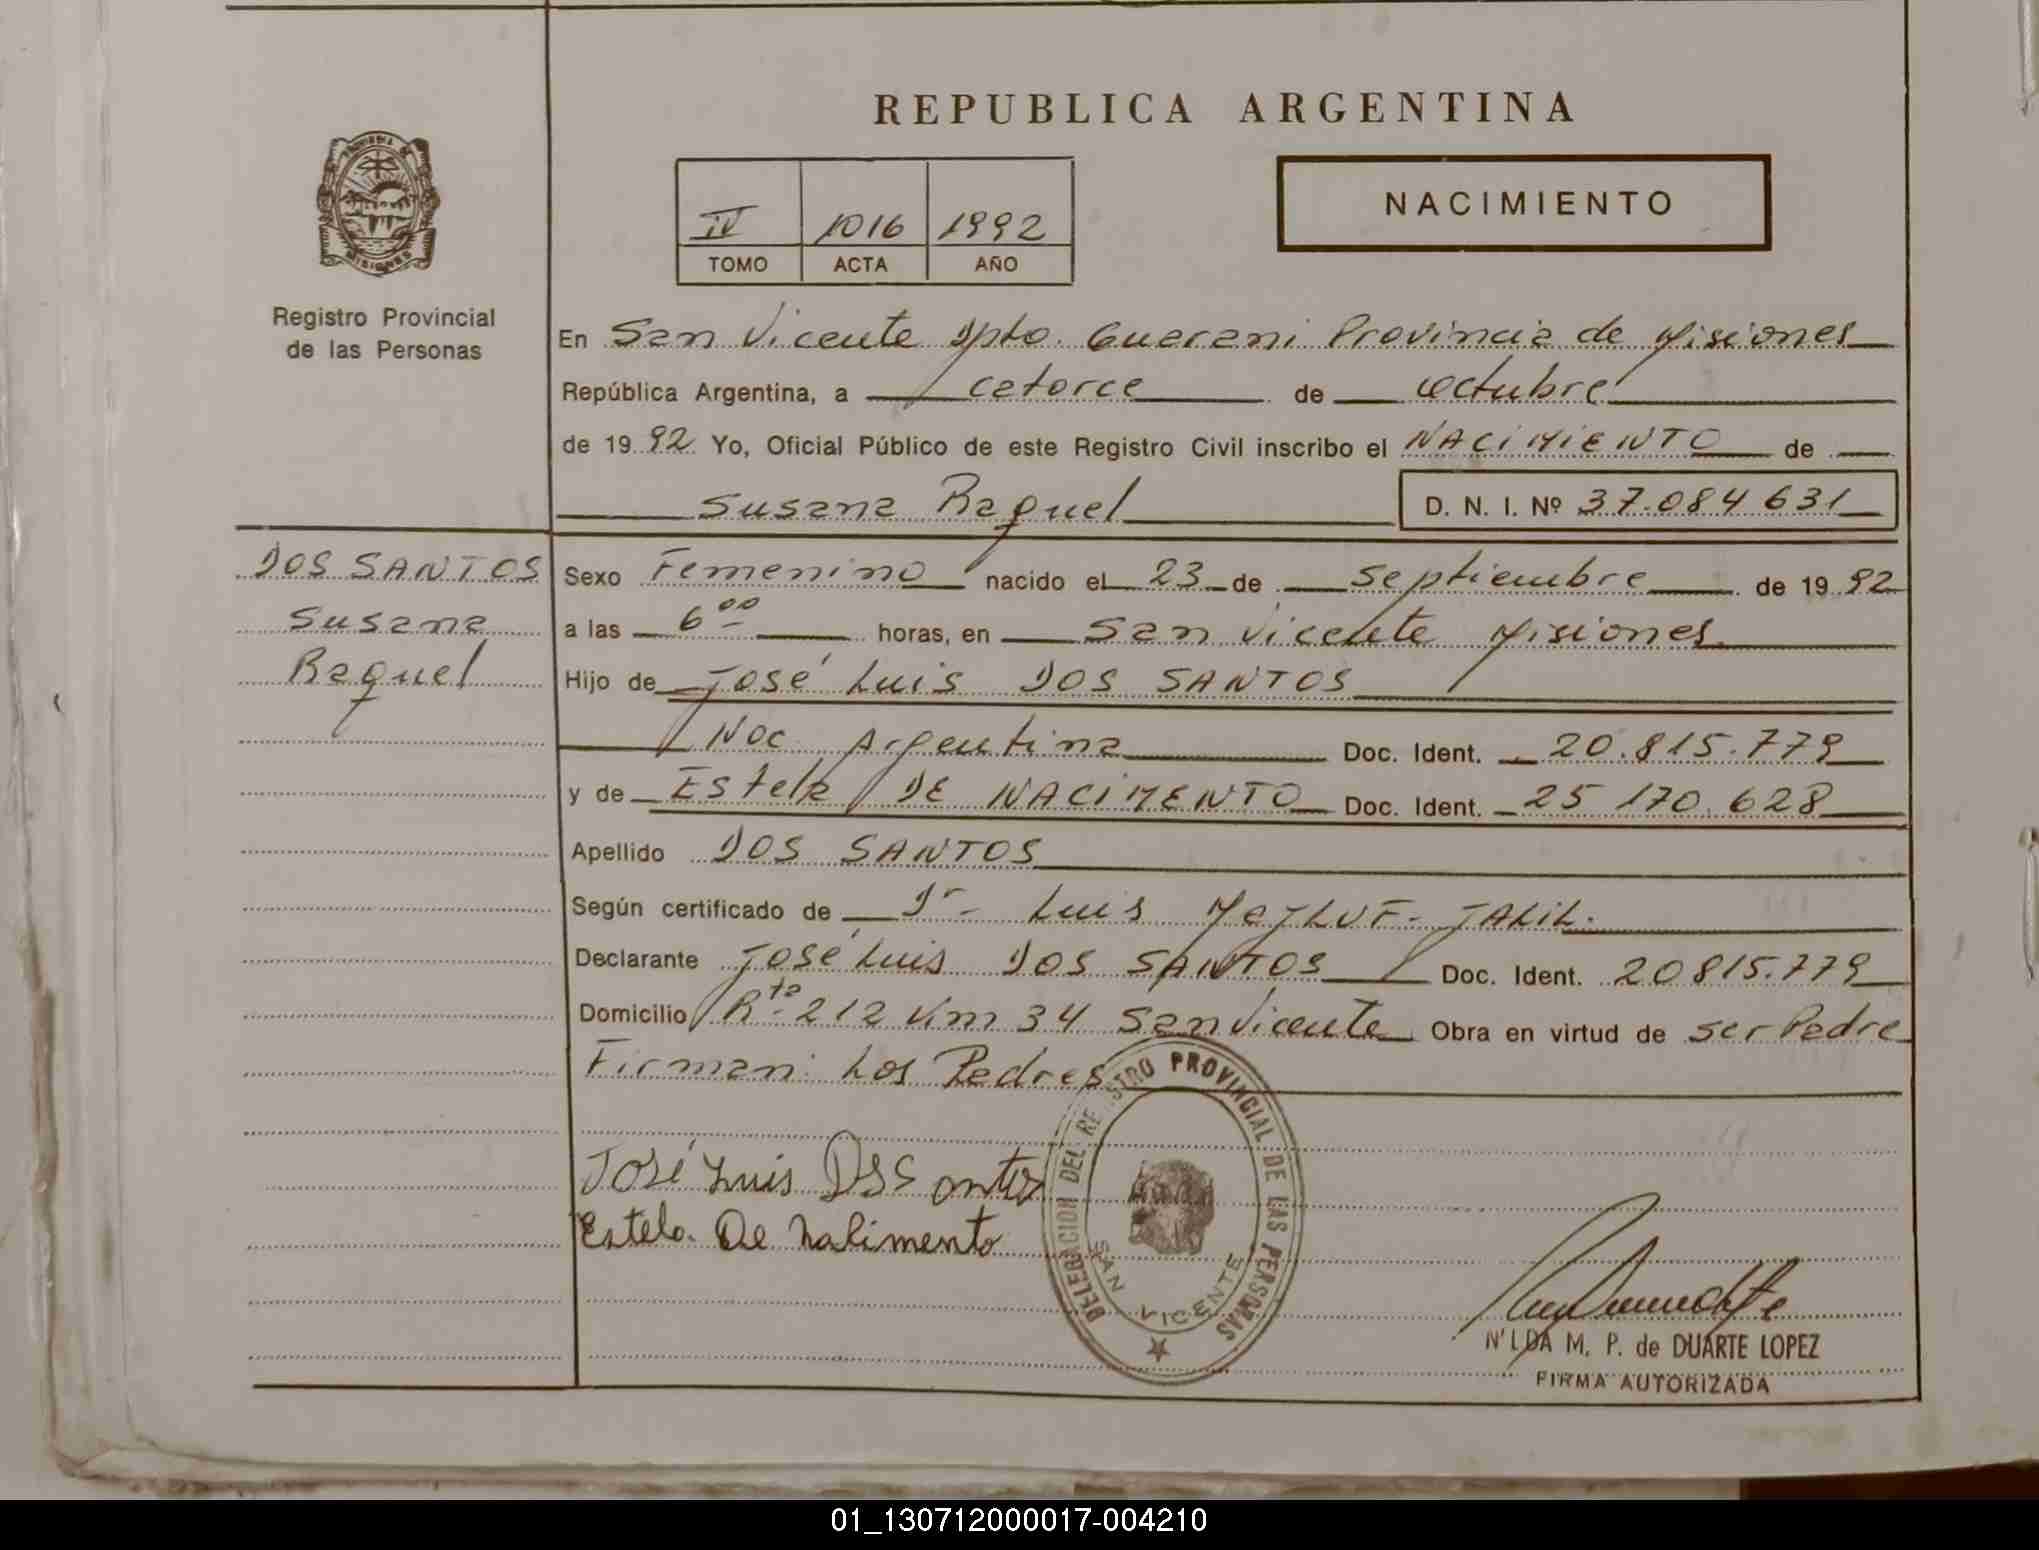 REPUBLICA ARGENTINA
NACIMIENTO
IV 1016 1992
TOMO ACTA AÑO
PROVINCIA DE MISIONES
Registro Provincial
de las Personas
En San Vicente Dpto. Guarani Provincia de Misiones
República Argentina, a catorce de octubre
de 1992 Yo, Oficial Público de este Registro Civil inscribo el NACIMIENTO de
Susana Raquel D. N. I. Nº 37.084 631
DOS SANTOS
Susana
Raquel
Sexo Femenino nacido el 23 de septiembre de 1992
a las 6 00 horas, en San Vicente Misiones
Hijo de José Luis DOS SANTOS
Nac. Argentina Doc. Ident. 20.815.779
y de Estela DE NACIMENTO Doc. Ident. 25 170.628
Apellido DOS SANTOS
Según certificado de Dr. Luis JALIL.
Declarante José Luis DOS SANTOS Doc. Ident. 20815.779
Domicilio Rta. 212 Km 34 San Vicente Obra en virtud de ser Padre
Firman: Los Padres
José Luis DSSantos
Estela. De Nalimento
DELEGACION DEL REGISTRO PROVINCIAL DE LAS PERSONAS
SAN VICENTE
N'LDA M. P. de DUARTE LOPEZ
FIRMA AUTORIZADA
01_130712000017-004210